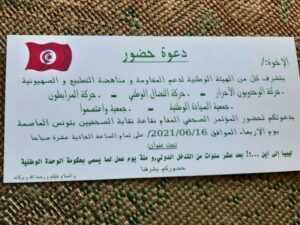 دعوة حضور
الاخوة:/
يتشرف كل من الهيئة الوطنية لدعم المقاومة و مناهضة التطبيع و الصهيونية
- حركة الوحدويون الأحرار - حركة النضال الوطني - حركة المرابطون
- جمعية السيادة الوطنية - جمعية وأعتصموا
بدعوتكم لحضور المؤتمر الصحفي المقام بقاعة نقابة الصحفيين بتونس العاصمة
يوم الاربعاء الموافق 2021/06/16 على تمام الساعة الحادية عشرة صباحا
تحت عنوان
ليبيا إلى أين ...؟ بعد عشر سنوات من التدخل الدولي، و مئة يوم عمل لما يسمى بحكومة الوحدة الوطنية
حضوركم يشرفنا
و السلام عليكم و رحمة الله و بركاته